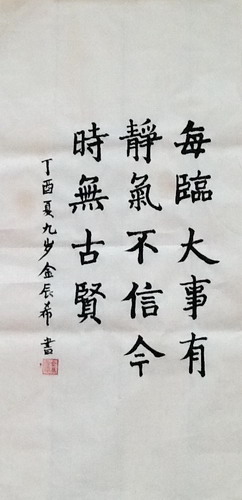 每臨大事有
靜氣不信今
時無古賢
丁酉夏九岁金辰希書